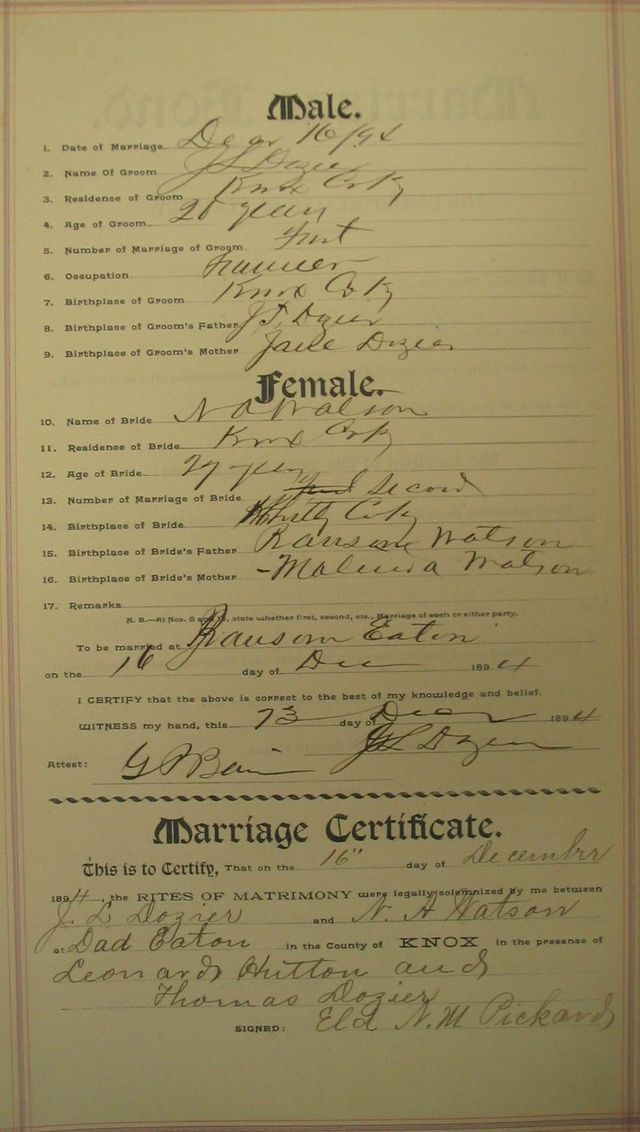 Male.
1. Date of Marriage 16/94
2. Name Of Groom J L Dozier
3. Residence of Groom Knox Co Ky
4. Age of Groom 20 years
5. Number of Marriage of Groom First
6. Occupation Farmer
7. Birthplace of Groom Knox Co Ky
8. Birthplace of Groom's Father J. T. Dozier
9. Birthplace of Groom's Mother Jane Dozier
Female.
10. Name of Bride N A Watson
11. Residence of Bride Knox Co Ky
12. Age of Bride 27 years
13. Number of Marriage of Bride Second
14. Birthplace of Bride Whitly Co Ky
15. Birthplace of Bride's Father Ransom Watson
16. Birthplace of Bride's Mother Malinda Watson
17. Remarks
N. B.—At Nos. 5 and 13, state whether first, second, etc., Marriage of each or either party.
To be married at Ransom Eaton
on the 16 day of Dec 1894
I CERTIFY that the above is correct to the best of my knowledge and belief.
WITNESS my hand, this 13 day of 1894
J L Dozier
Attest:
Marriage Certificate.
This is to Certify, That on the 16" day of December
1894, the RITES OF MATRIMONY were legally solemnized by me between
J. L Dozier and N. A Watson
at Dad Eaton in the County of KNOX in the presence of
Leonard Hutton and
Thomas Dozier
SIGNED: Eld N. M Pickard